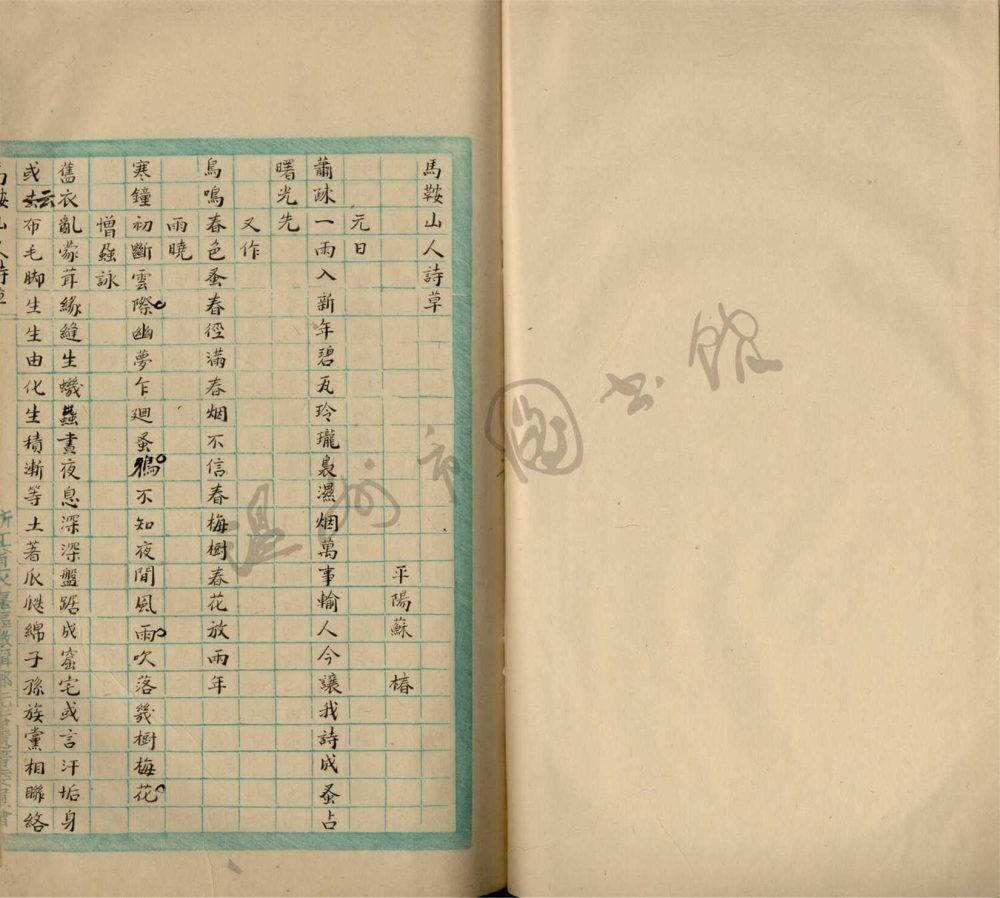 馬鞍山人詩草
平陽蘇 椿
元日
蕭疎一雨入新年碧瓦玲瓏裊濕烟萬事輸人今讓我詩成蚤占
曙光先
又作
鳥鳴春色蚤春徑滿春烟不信春梅樹春花放雨年
雨曉
寒鐘初斷雲際幽夢乍廻蚤鴉不知夜間風雨吹落幾樹梅花
憎蝨詠
舊衣亂蒙茸緣縫生蟣蝨晝夜息深深盤踞成窟宅或言汗垢身
或云布毛脚生生由化生積漸等土著瓜瓞綿子孫族黨相聯絡
馬鞍山人詩草
溫州市圖書館